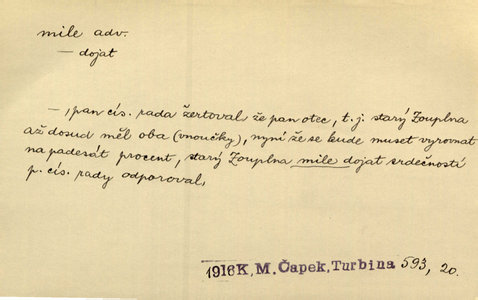 mile adv.
— dojat
—, pan cís. rada žertoval že pan otec, t. j. starý Zouplna
až dosud měl oba (vnoučky), nyní že se bude muset vyrovnat
na padesát procent, starý Zouplna mile dojat srdečností
p. cís. rady odporoval,
1916 K. M. Čapek, Turbina 593, 20.